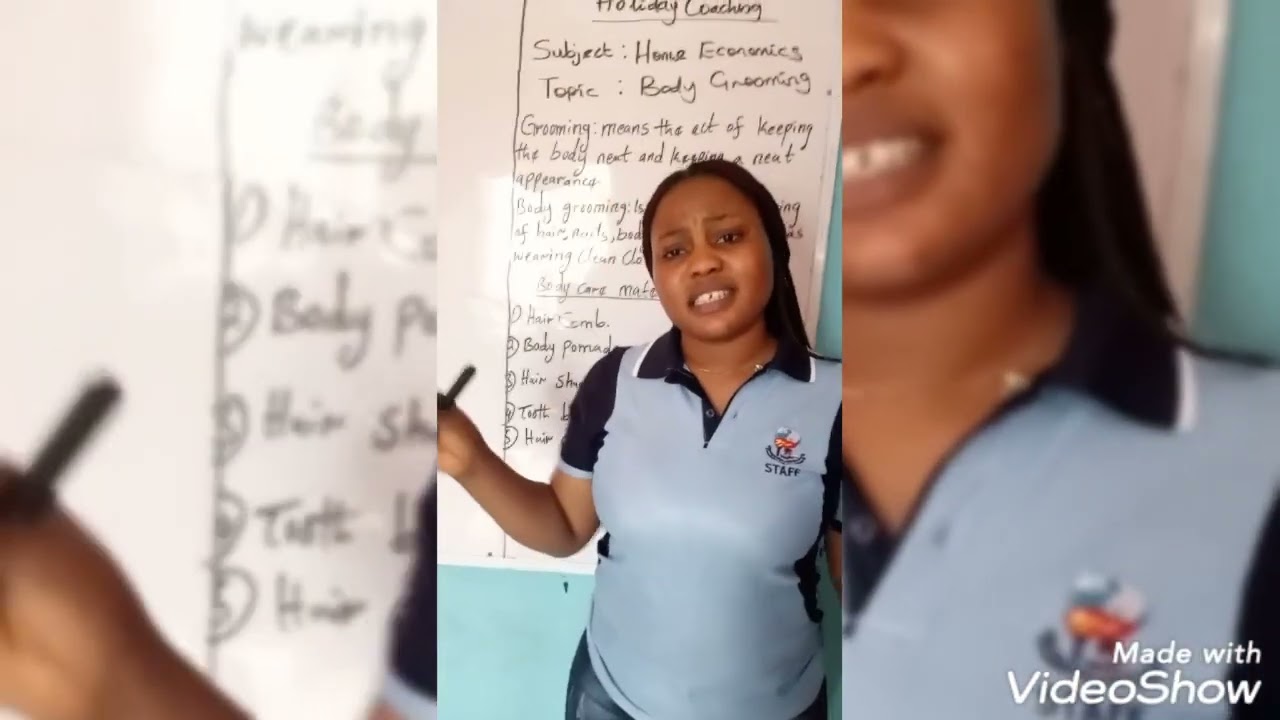 Holiday Coaching
Subject : Home Economics
Topic : Body Grooming
Grooming: means the act of keeping
the body neat and keeping a neat
appearance
Body grooming: Is ing
of hair, nails, bod as
wearing clean clo
Body care mate
1) Hair comb.
2) Body pomad
3) Hair sha
4) Tooth b
5) Hair
STAFF
Made with
VideoShow